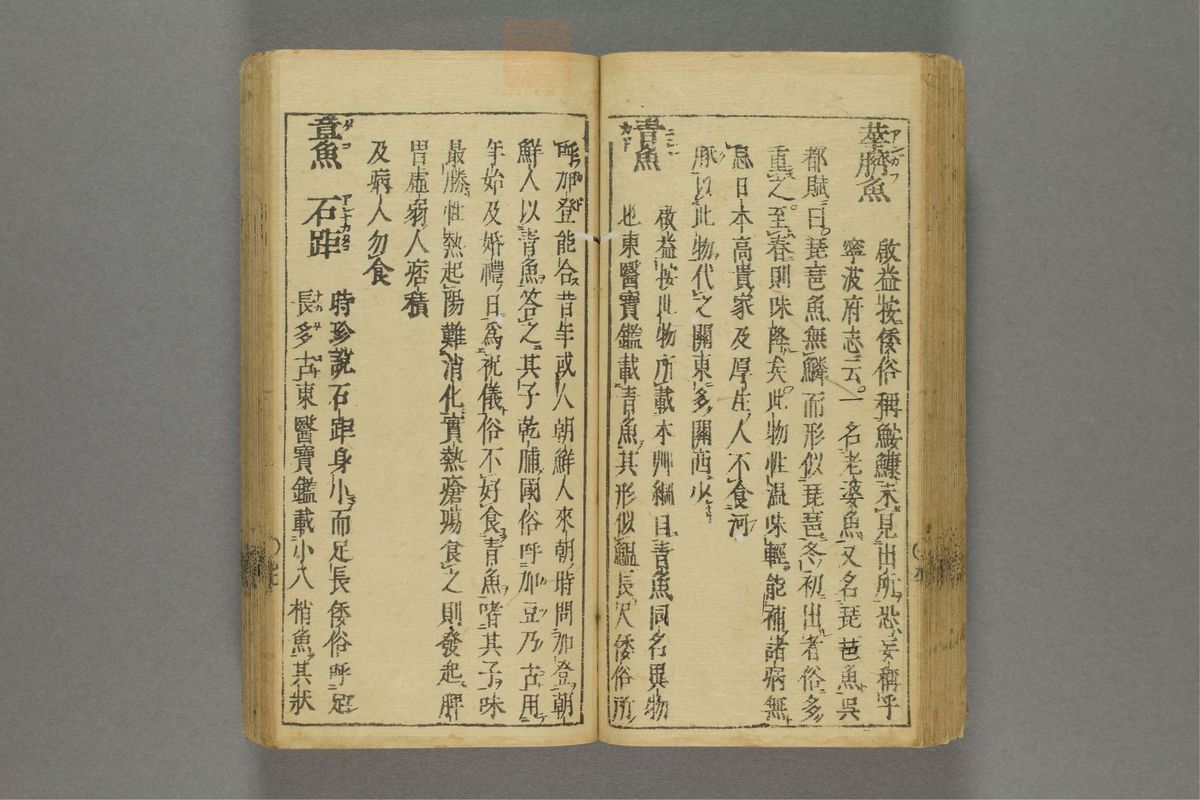 華臍魚
啟益按倭俗稱鮟鱇未見出所恐妄稱乎
寧波府志云一名老婆魚又名琵芭魚吳
都賦曰琵琶魚無鱗而形似琵琶冬初出者俗多
重之至春則味降矣此物性温味輕能補諸病無
忌日本高貴家及厚生人不食河
豚以此物代之關東多關西少
青魚
啟益按此物所載本艸綱目青魚同名異物
也東醫寶鑑載青魚其形似鰮長尺倭俗所
呼加登能合昔年或人朝鮮人來朝時問加登朝
鮮人以青魚答之其子乾脯國俗呼加豆乃古用
年始及婚禮日為祝儀俗不好食青魚嗜其子味
最勝性熱起陽難消化實熱瘡瘍食之則發起脾
胃虛弱人痞積
及病人勿食
章魚 石距
時珍說石距身小而足長倭俗呼足
長多古東醫寶鑑載小八梢魚其狀